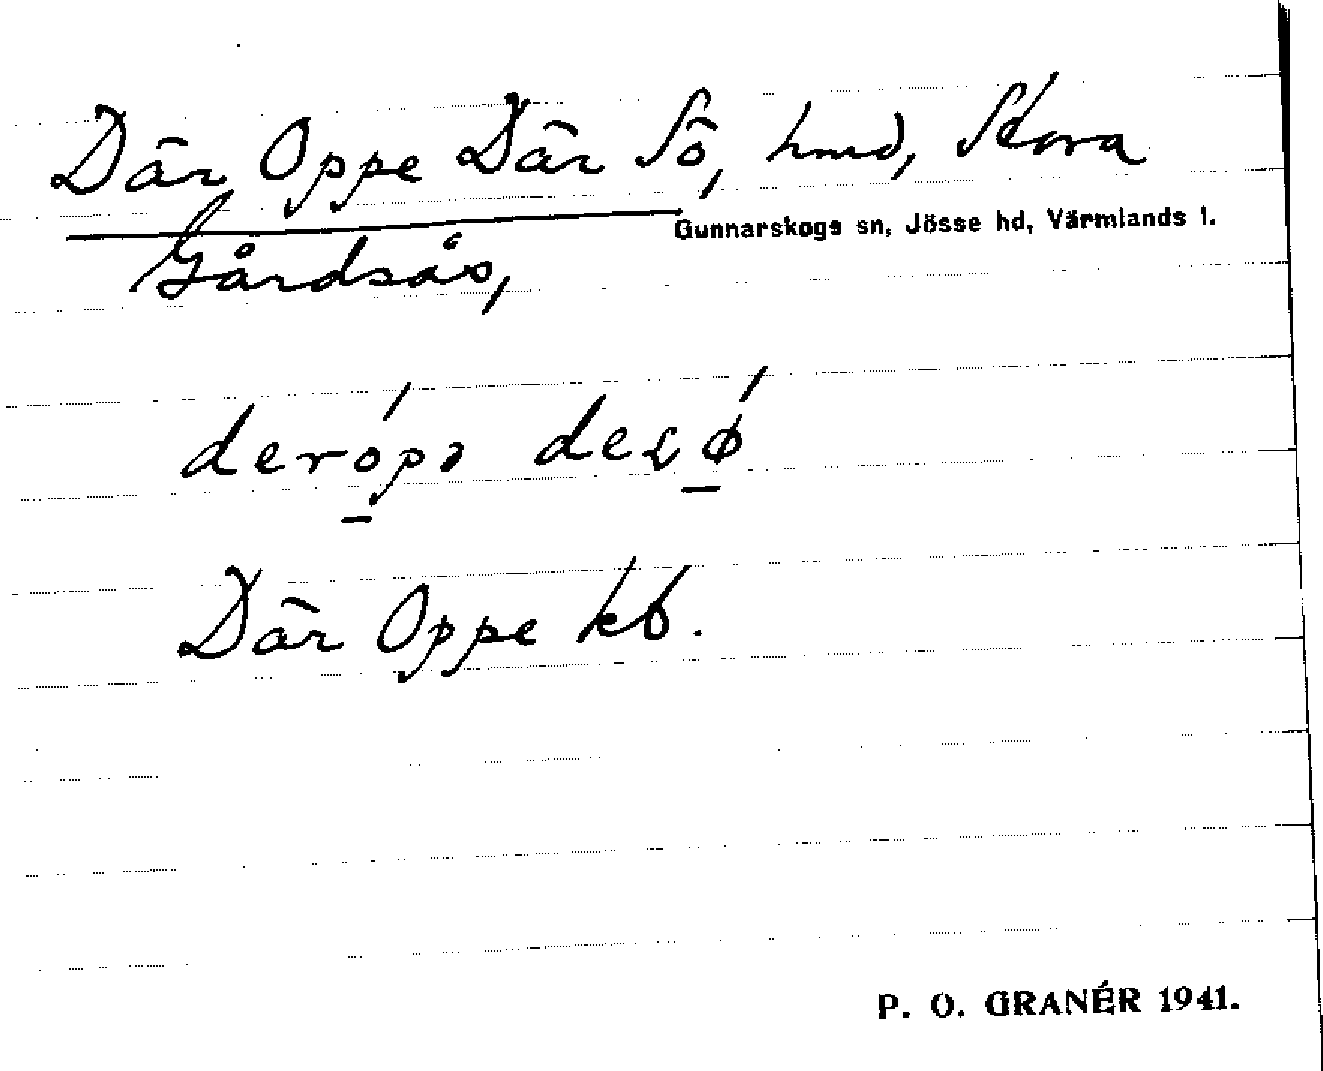 Där Oppe Där Sö, hmd, Stora
Gunnarskogs sn, Jösse hd, Värmlands l.
Gårdsås,
derópə
Där Oppe kb.
P. O. GRANÉR 1941.